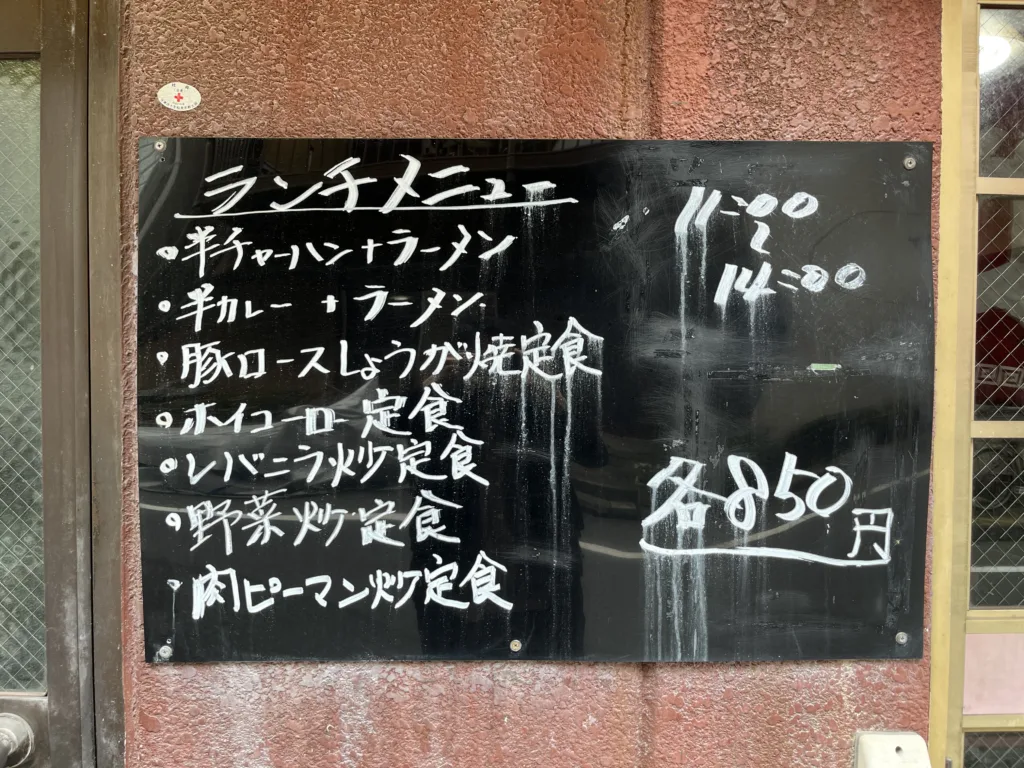 ランチメニュー
・半チャーハン+ラーメン
・半カレー+ラーメン
・豚ロースしょうが焼定食
・ホイコーロー定食
・レバニラ炒定食
・野菜炒定食
・肉ピーマン炒定食
11:00
〜
14:00
各850円